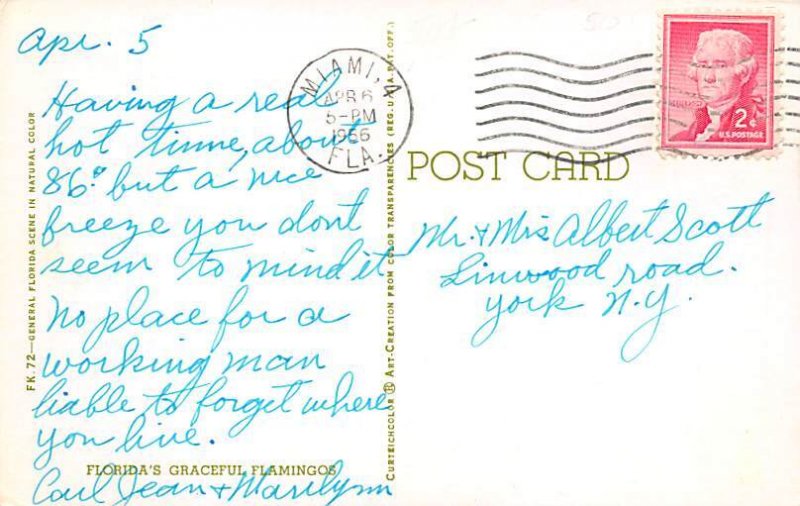 Apr. 5
Having a real
hot time, about
86° but a nice
freeze you dont
seem to mind it
No place for a
working man
liable to forget where
you live.
FLORIDA'S GRACEFUL FLAMINGOS
Carl Jean + Marilynn
FK. 72—GENERAL FLORIDA SCENE IN NATURAL COLOR
CURTEICHCOLOR ® ART-CREATION FROM COLOR TRANSPARENCIES (REG. U.S.A. PAT. OFF.)
MIAMI, A
APR 6
5-PM
1956
FLA.
2¢
U.S. POSTAGE
POST CARD
Mr. + Mrs Albert Scott
Linwood road.
York N.Y.